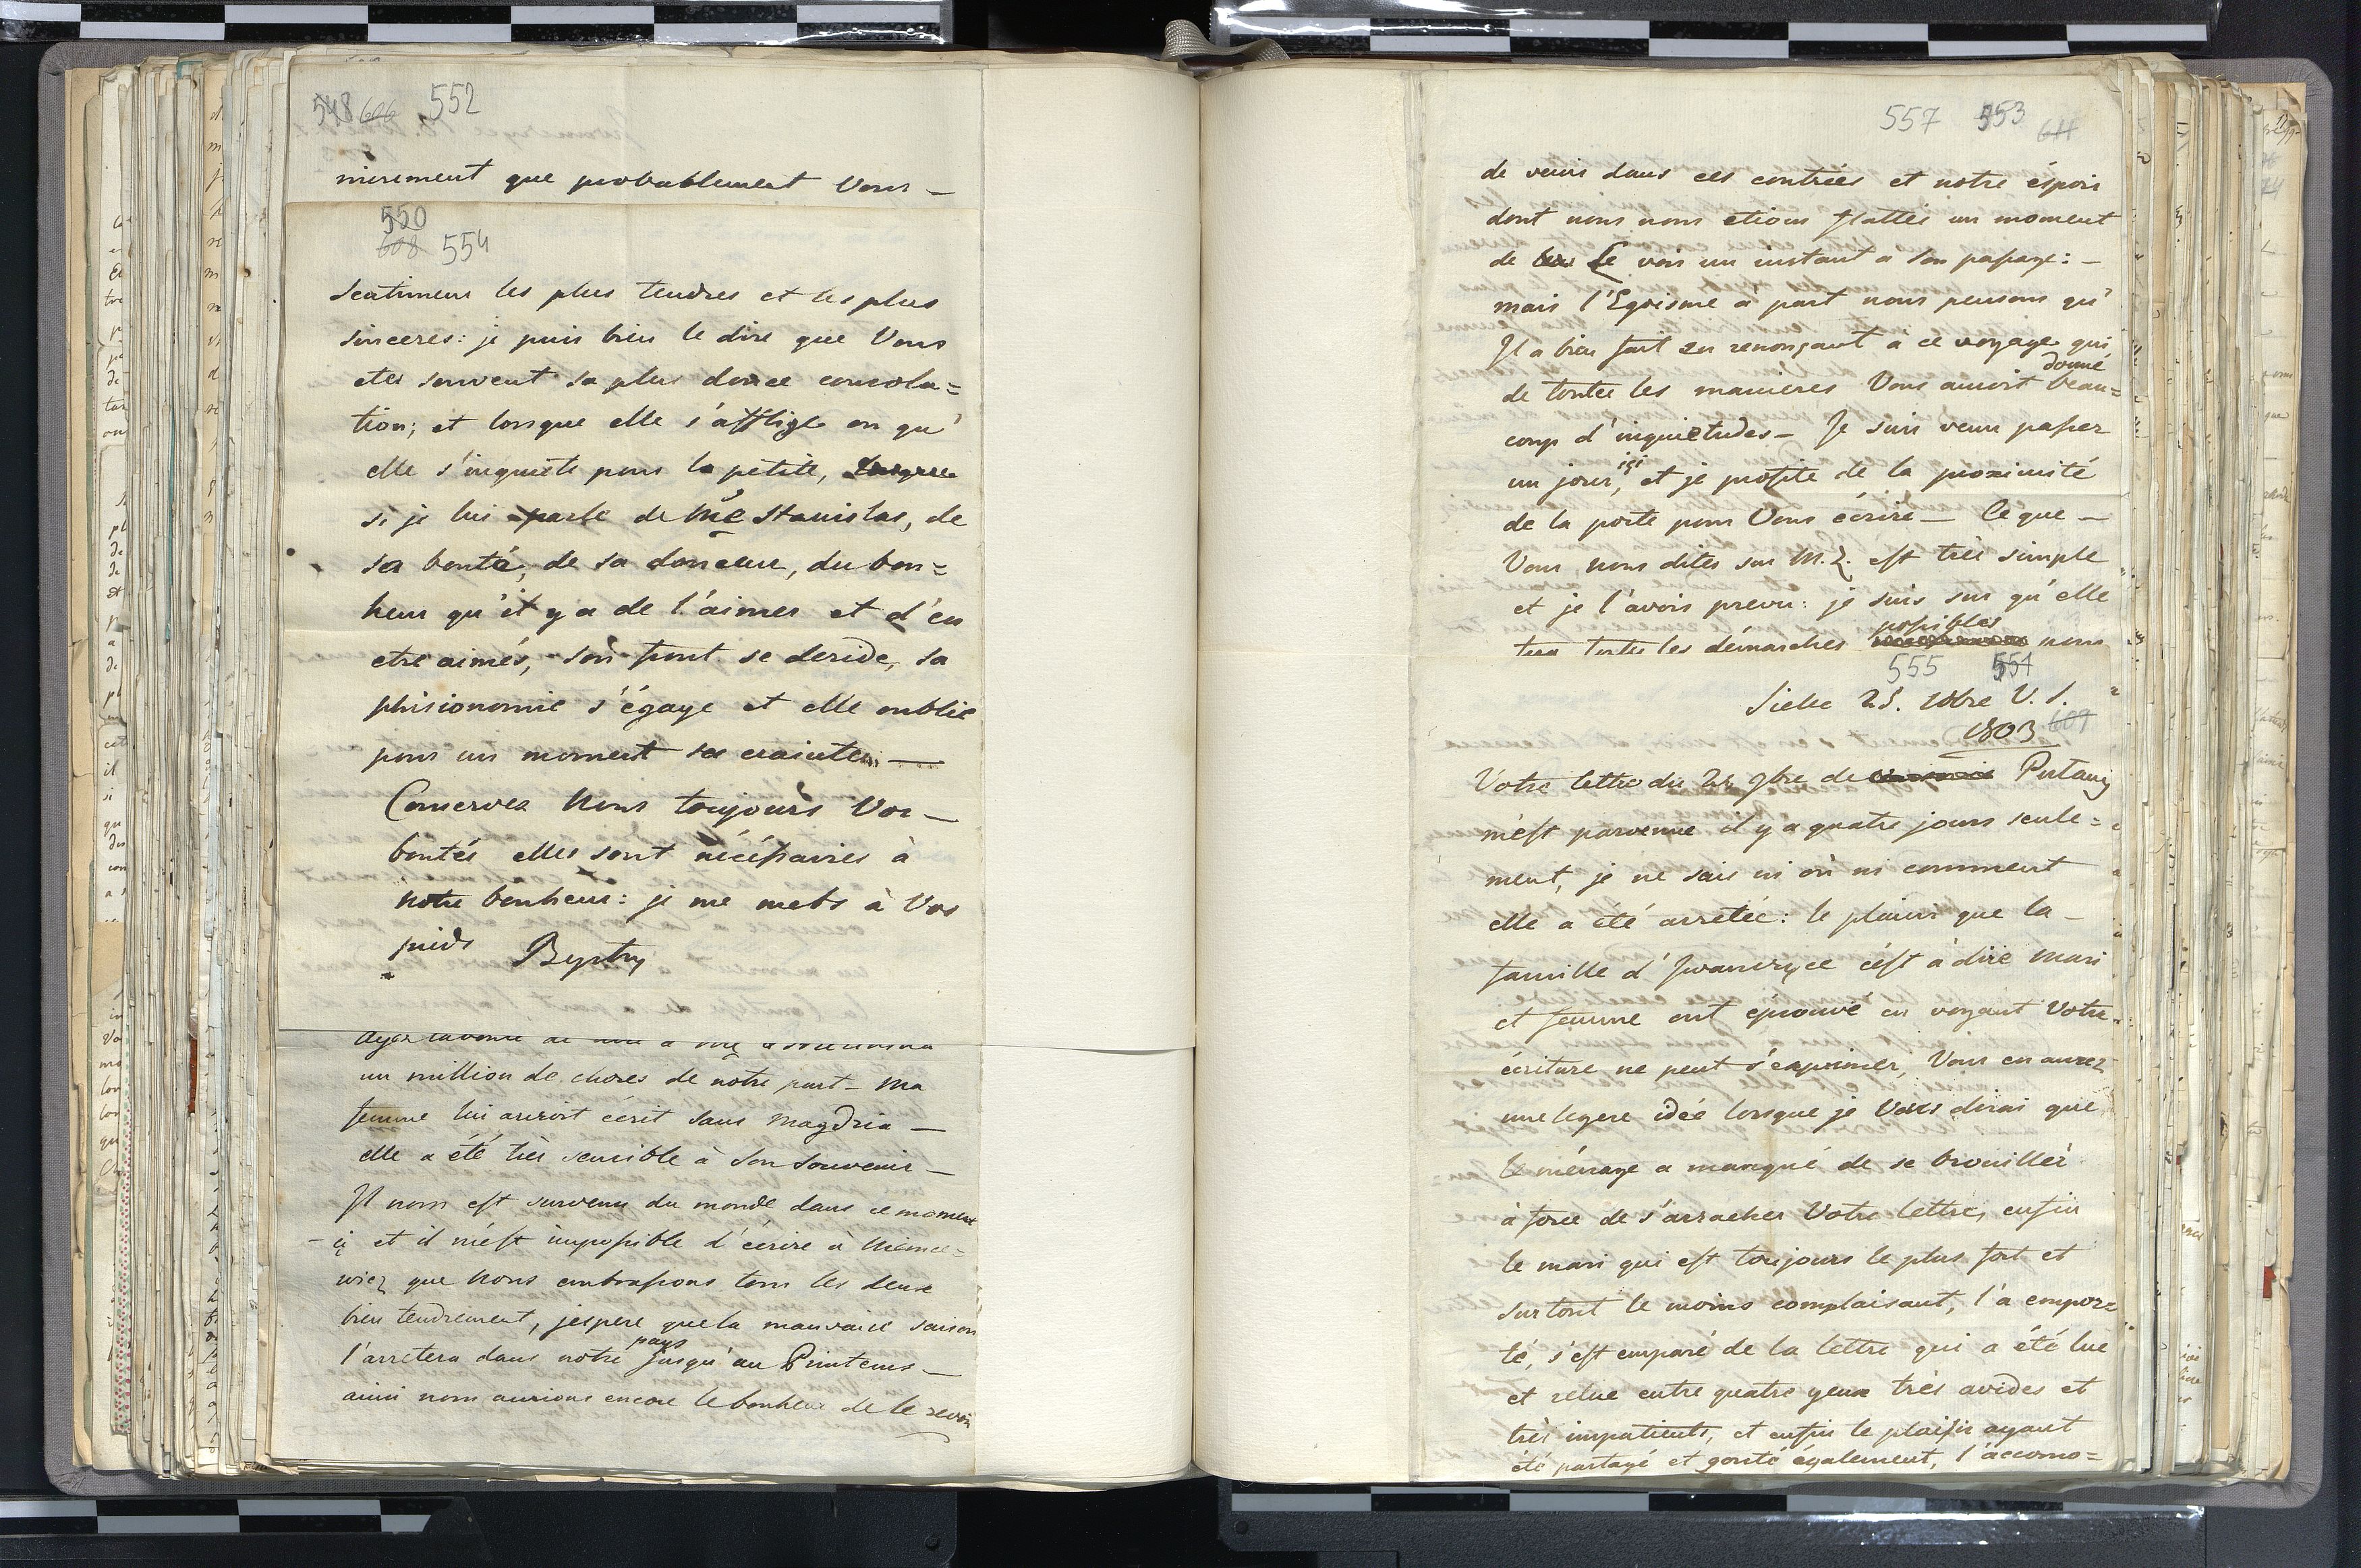 548 606 552
nierement que probablement Vous —
550
608 554
sentimens les plus tendres et les plus
sinceres: je puis bien le dire que Vous
etes souvent sa plus douce consola=
tion; et lorsque elle s'afflige ou qu'
elle s'inquiete pour la petite,
si je lui parle de Mme Stanislas, de
sa bonté, de sa douceur, du bon=
heur qu'il y a de l'aimer et d'en
etre aimés, son front se deride, sa
phisionomie s'égaye et elle oublie
pour un moment sa crainte. —
Conservez Nous toujours Vos —
bontés elles sont nécéssaires à
notre bonheur: je me mets à Vos
pieds Bystry
un million de choses de notre part — Ma
femme lui auroit écrit sans Magdzia —
elle a été très sensible à son souvenir —
Il nous est survenu du monde dans ce moment
— çi et il m'est impossible d'écrire à Niemce=
wicz que Nous embrassons tous les deux
bien tendrement, j'espere que la mauvaise saison
l'arretera dans notre pays jusqu'au Printems —
ainsi nous aurions encore le bonheur de le revoir
557 553 611
de venir dans ces contrées et notre éspoir
dont nous nous etions flattés un moment
de le voir un instant a son passage: —
mais l'Egoisme à part nous pensons qu'
Il a bien fait en renonçant à ce voyage qui
de toutes les manieres Vous auroit donné beau=
coup d'inquietudes — Je suis venu passer
un jour içi, et je profite de la proximité
de la poste pour Vous écrire — Ce que —
Vous nous dites sur M. Z. est très simple
et je l'avois prevu: je suis sur qu'elle
fera toutes les démarches possibles nous
555 554
Sielec 25. Xbre V. S.
1803 609
Votre lettre du 24 9bre de Putawy
m'est parvenue il y a quatre jours seule=
ment, je ne sais ni où ni comment
elle a été arretée: le plaisir que la —
famille d' c'est à dire Mari
et femme ont éprouvé en voyant Votre
écriture ne peut s'exprimer, Vous en aurez
une legere idée lorsque je Vous dirai que
le ménage a manqué de se brouiller
à force de s'arracher Votre lettre, enfin
le mari qui est toujours le plus fort et
surtout le moins complaisant, l'a empor=
té, s'est emparé de la lettre qui a été lue
et relue entre quatre yeux très avides et
très impatients, et enfin le plaisir ayant
été partagé et gouté également, l'accomo=